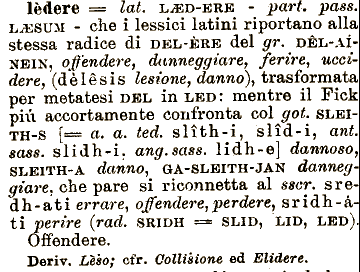 lèdere = lat. LÆD-ERE - part. pass.
LÆSUM - che i lessici latini riportano alla
stessa radice di DEL-ÈRE del gr. DÊL-AÍ-
NEIN, offendere, danneggiare, ferire, ucci-
dere, (dèlêsis lesione, danno), trasformata
per metatesi DEL in LED: mentre il Fick
piú accortamente confronta col got. SLEI-
TH-S [= a. a. ted. slîth-i, slîd-i, ant.
sass. slidh-i, ang. sass. lidh-e] dannoso,
SLEITH-A danno, GA-SLEITH-JAN danneg-
giare, che pare si riconnetta al sscr. sre-
dh-ati errare, offendere, perdere, sridh-á-
ti perire (rad. SRIDH = SLID, LID, LED).
Offendere.
Deriv. Lèso; cfr. Collisione ed Elidere.